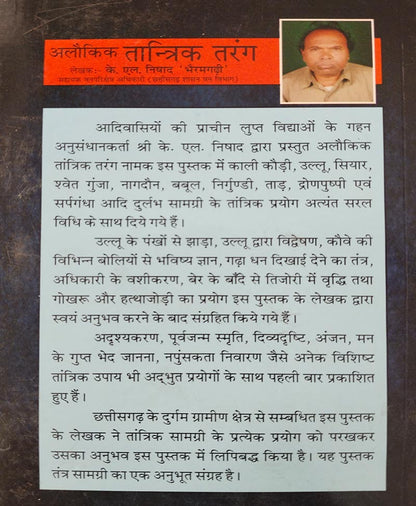 अलौकिक तान्त्रिक तरंग
लेखक:- के. एल. निषाद 'भैरमगढ़ी'
सहायक वनपरिक्षेत्र अधिकारी (छत्तीसगढ़ शासन वन विभाग)
आदिवासियों की प्राचीन लुप्त विद्याओं के गहन
अनुसंधानकर्ता श्री के. एल. निषाद द्वारा प्रस्तुत अलौकिक
तांत्रिक तरंग नामक इस पुस्तक में काली कौड़ी, उल्लू, सियार,
श्वेत गुंजा, नागदौन, बबूल, निर्गुण्डी, ताड़, द्रौणपुष्पी एवं
सर्पगंधा आदि दुर्लभ सामग्री के तांत्रिक प्रयोग अत्यंत सरल
विधि के साथ दिये गये हैं।
उल्लू के पंखों से झाड़ा, उल्लू द्वारा विद्वेषण, कौवे की
विभिन्न बोलियों से भविष्य ज्ञान, गढ़ा धन दिखाई देने का तंत्र,
अधिकारी के वशीकरण, बेर के बाँदे से तिजोरी में वृद्धि तथा
गोखरू और हत्थाजोड़ी का प्रयोग इस पुस्तक के लेखक द्वारा
स्वयं अनुभव करने के बाद संग्रहित किये गये हैं।
अदृश्यकरण, पूर्वजन्म स्मृति, दिव्यदृष्टि, अंजन, मन
के गुप्त भेद जानना, नपुंसकता निवारण जैसे अनेक विशिष्ट
तांत्रिक उपाय भी अद्भुत प्रयोगों के साथ पहली बार प्रकाशित
हुए हैं।
छत्तीसगढ़ के दुर्गम ग्रामीण क्षेत्र से सम्बधित इस पुस्तक
के लेखक ने तांत्रिक सामग्री के प्रत्येक प्रयोग को परखकर
उसका अनुभव इस पुस्तक में लिपिबद्ध किया है। यह पुस्तक
तंत्र सामग्री का एक अनुभूत संग्रह है।